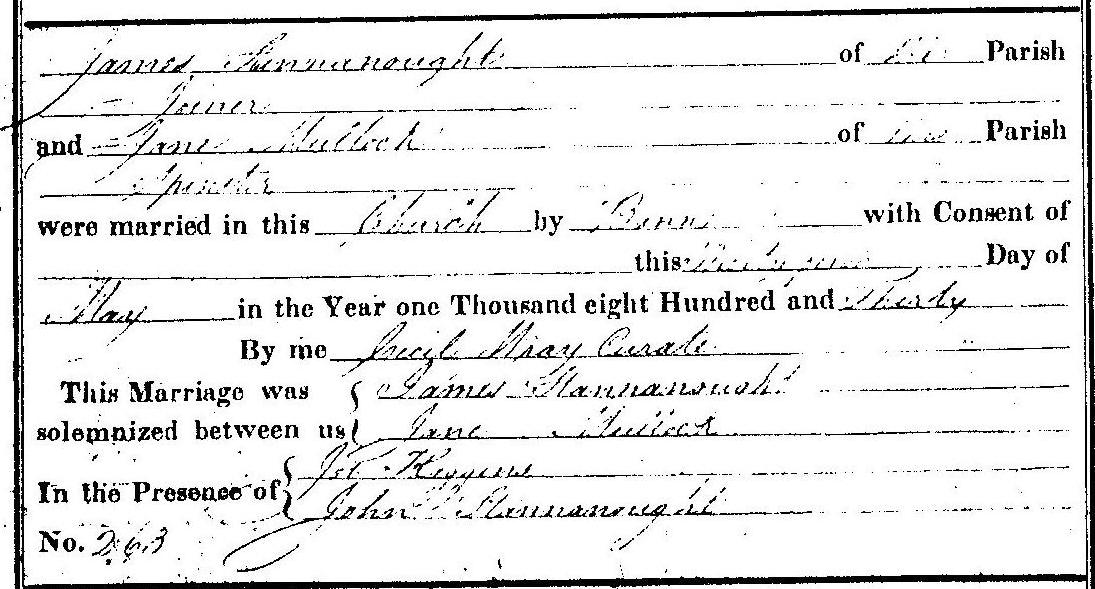 James Stannanought of this Parish
Joiner
and Jane Mullock of this Parish
Spinster
were married in this Church by Banns with Consent of
this Day of
May in the Year one Thousand eight Hundred and Thirty
By me Cecil Wray Curate
This Marriage was { James Stannanought
solemnized between us { Jane Mullock
In the Presence of { Higgins
John Stannanought
No. 263